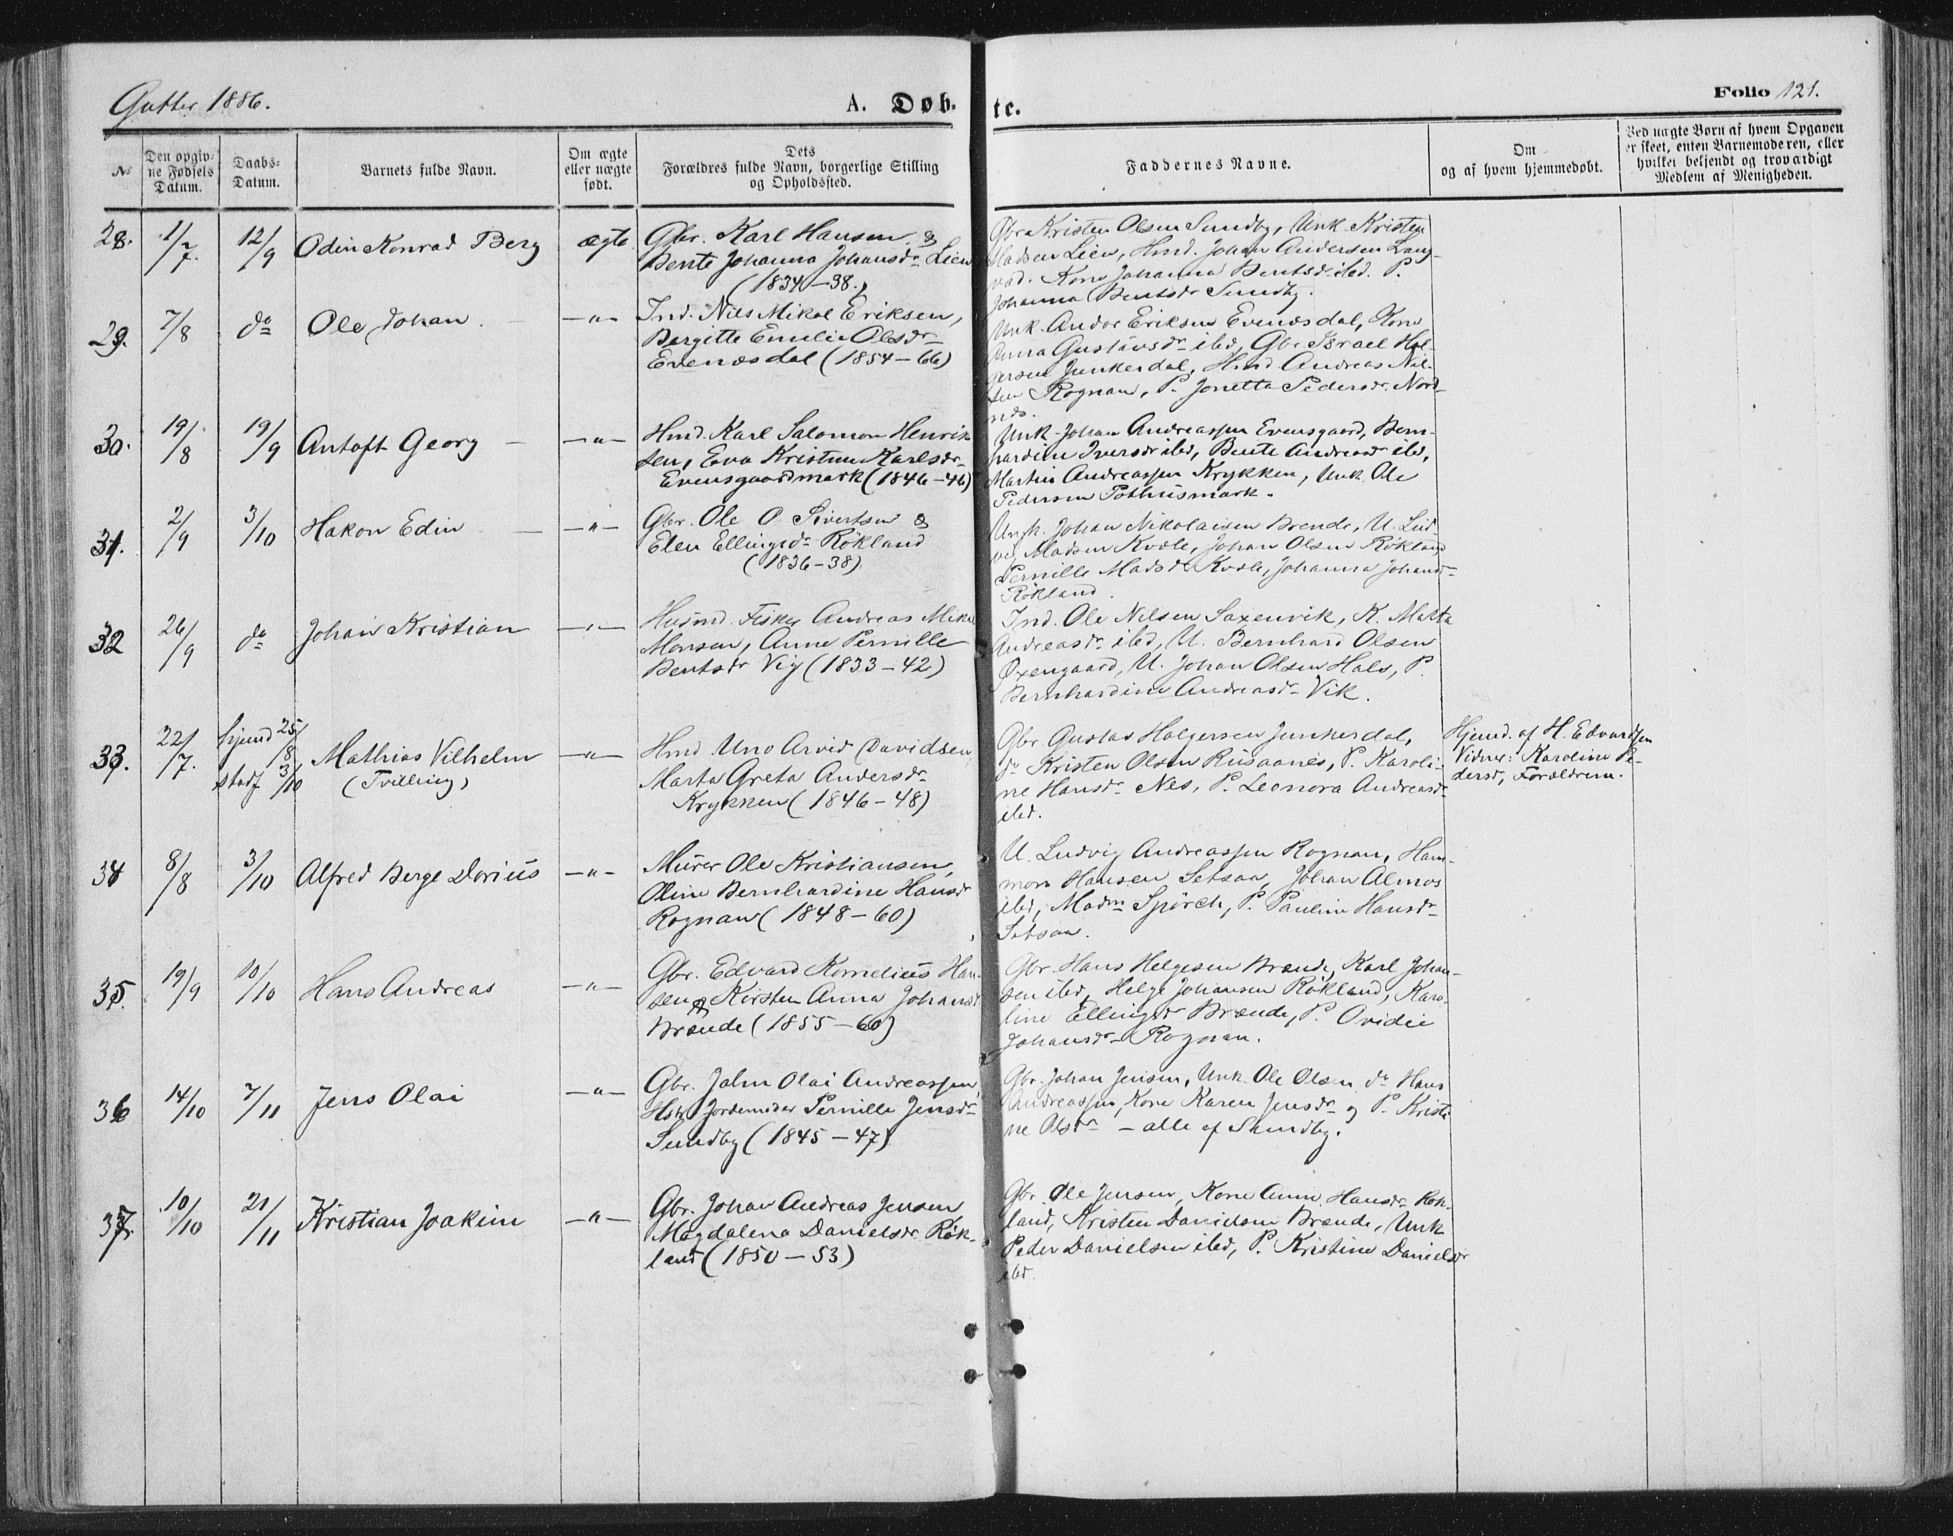 Gutter 1886.
A. Døb-
te.
Folio 121.
No
Den opgiv-
ne Fødsels
Datum.
Daabs-
Datum.
Barnets fulde Navn.
Om ægte
eller uægte
født.
Dets
Forældres fulde Navn, borgerlige Stilling
og Opholdssted.
Faddernes Navne.
Om
og af hvem hjemmedøbt.
Ved uægte Børn af hvem Opgaven
er skeet, enten Barnemoderen, eller
hvilket bekjendt og troværdigt
Medlem af Menigheden.
28. 1/7. 12/9 Odin Konrad Berg ægte
Gbr. Karl Hansen &
Bente Johanna Johansdr Lien
(1834-38.)
Gbr. Kristen Olsen Sundby, Unk. Kristen
Madsen Lien, Hmd. Johan Andersen Lang-
vad. Kone Johanna Bentsdr ibd. P.
Johanna Bentsdr Sundby.
29. 7/8 do Ole Johan -"-
Ind. Nils Mikal Eriksen,
Bergitte Emilie Olsdr
Evenesdal (1854-66)
Unk. Andor Eriksen Evenesdal, Kone
Anna Gustavsdr ibd, Gbr Israel Hol-
gersen Junkerdal, Hmd. Andreas Nil-
sen Rognan, P. Jonetta Pedersdr Nord-
nes.
30. 19/8 19/9 Antoft Georg -"-
Hmd. Karl Salomon Henrik
sen, Eva Kristine Karlsdr
Evensgaardmark (1846-46)
Unk. Johan Andreassen Evensgaard, Bern-
hardine Iversdr ibd, Bente Andreasdr ibd,
Martin Andreassen Krykken, Unk. Ole
Pedersen Pothusmark.
31. 2/9 3/10 Hakon Edin -"-
Gbr. Ole O. Sivertsen &
Elen Ellingsdr Røkland
(1836-38)
Ungk. Johan Nikolaisen Brende, U. Lud
vig Madsen Kvæle, Johan Olsen Røkland
Pernille Madsdr Kvæle, Johanna Johansdr
Røkland.
32 26/9 do Johan Kristian -"-
Husmd. Fisker Andreas Mikal
Monsen, Anne Pernille
Bentsdr Vig (1833-42)
Ind. Ole Nilsen Saxenvik, K. Matta
Andreasdr ibd, U. Bernhard Olsen
Øxengaard, U. Johan Olsen Hals, P.
Bernhardine Andreasdr Vik.
33. 22/7. hjemd 25/8 stadf 3/10 Mathias Vilhelm -"-
(Tvilling)
Hmd Uno Arvid Davidsen
Marta Greta Andersdr
Krykken (1846-48)
Gbr. Gustav Holgersen Junkerdal,
do Kristen Olsen Rusaanes, P. Karoli-
ne Hansdr Nes, P. Leonora Andreasdr
ibd.
Hjemd. af H. Edvardsen
Vidner: Karoline Pe-
dersd, Forældrene.
34 8/8 3/10 Alfred Berge Dorius -"-
Murer Ole Kristiansen,
Oline Bernhardine Hansdr
Rognan (1848-60)
U. Ludvig Andreassen Rognan, Ham-
mon Hansen Setsaa, Johan Almos
ibd, Madm Spörch, P. Pauline Hansdr
Setsaa.
35. 19/9 10/10 Hans Andreas -"-
Gbr. Edvard Kornelius Han-
sen & Kirsten Anna Johansdr
Brænde (1855-60)
Gbr. Hans Helgesen Brænde, Karl Johan-
sen ibd, Helge Johansen Røkland, Karo-
line Ellingsdr Brænde, P. Ovidie
Johansdr Rognan.
36 14/10 7/11 Jens Olai -"-
Gbr. Johan Olai Andreassen,
Hstr Jordemoder Pernille Jensdr
Sundby (1845-47)
Gbr. Johan Jensen, Unk. Ole Olsen do Hans
Andreassen, Kone Karen Jensdr og P. Kristi
ne Olsdr - alle af Sundby.
37. 10/10 21/11 Kristian Joakim -"-
Gbr. Johan Andreas Jensen
Magdalena Danielsdr Røk-
land (1850-53)
Gbr. Ole Jensen, Kone Anne Hansdr Røk-
land, Kristen Danielsen Brænde, Unk
Peder Danielsen ibd, P. Kristine Danielsdr
ibd.